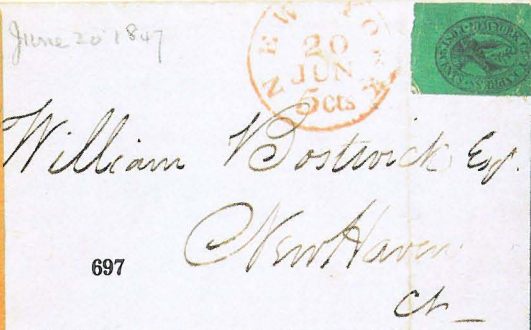 June 20 1847
NEW YORK
20
JUN
5cts
William Bostwick Esq.
New Haven
697
Ct